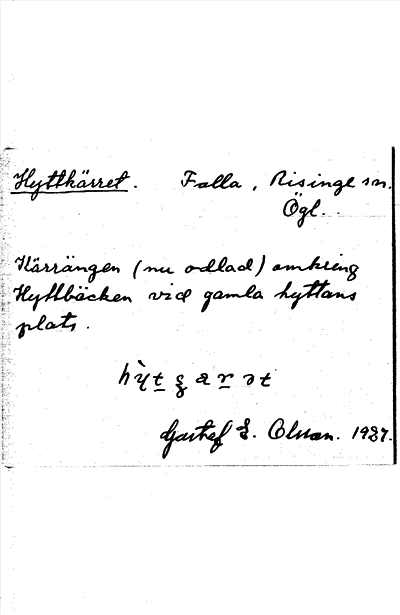 Hyttkärret. Falla, Risinge sn.
Ögl.
Kärrängen (nu odlad) omkring
Hyttbäcken vid gamla hyttans
plats.
Gustaf E. Olsson. 1927.